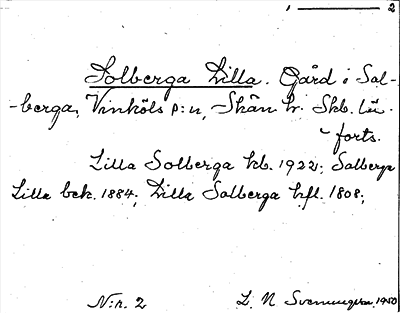 1 — 2
Solberga Lilla. Gård i Sol-
-berga, Vinköls p:n, Skån hr. Skb. län.
forts.
Lilla Solberga hb. 1922; Solberga
Lilla bek. 1884; Lilla Solberga hfl. 1808;
N:r. 2 L. N 1950